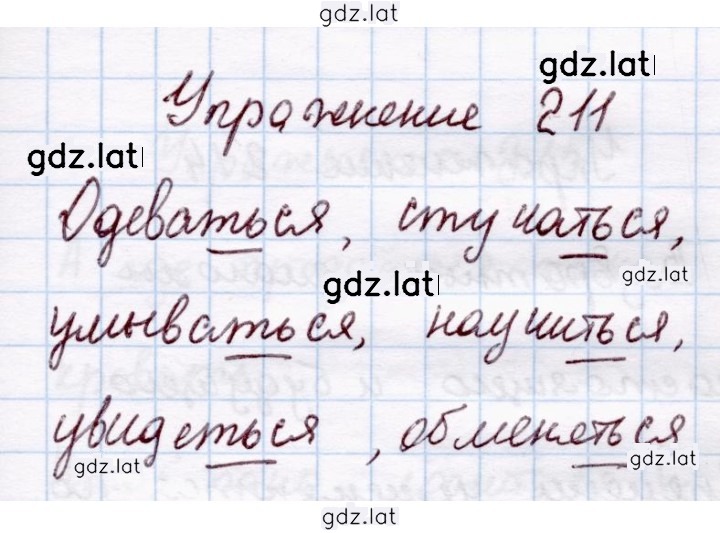 gdz.lat
gdz.lat
Упражнение 211
gdz.lat
Одеваться, стучаться,
gdz.lat
gdz.lat
умываться, научиться,
увидеться, обменяться
gdz.lat
gdz.lat
gdz.lat